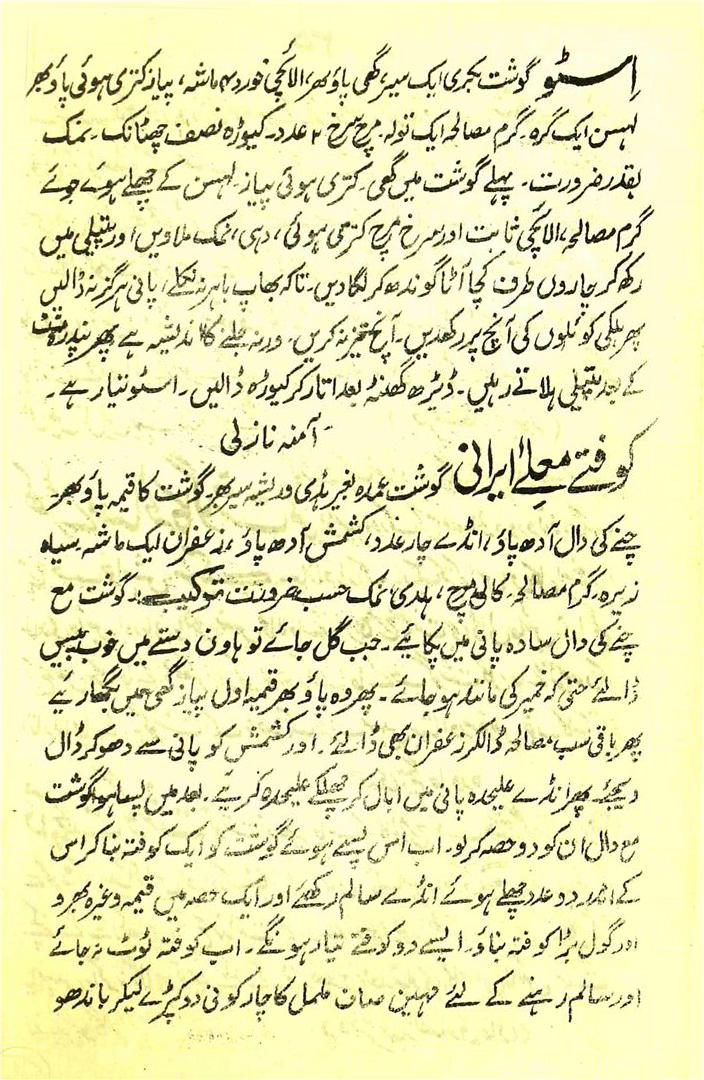 اِسٹو گوشت بکری ایک سیر، گھی پاؤ بھر، الائچی خورد ۴ ماشہ، پیاز کتری ہوئی پاؤ بھر
لہسن ایک گرہ۔ گرم مصالحہ ایک تولہ۔ مرچ سرخ ۲ عدد۔ کیوڑہ نصف چھٹانک۔ نمک
بقدر ضرورت۔ پہلے گوشت میں گھی۔ کتری ہوئی پیاز۔ لہسن کے چھلے ہوئے جوئے
گرم مصالحہ، الائچی ثابت اور سرخ مرچ کتری ہوئی، دہی، نمک ملاویں اور پتیلی میں
رکھ کر چاروں طرف کچا آٹا گوندھ کر لگا دیں۔ تاکہ بھاپ باہر نہ نکلے، پانی ہرگز نہ ڈالیں
پھر ہلکی کوئلوں کی آنچ پر رکھدیں۔ آنچ تیز نہ کریں۔ ورنہ جلنے کا اندیشہ ہے پھر پندرہ منٹ
کے بعد پتیلی ہلاتے رہیں۔ ڈیڑھ گھنٹہ بعد اتار کر کیوڑہ ڈالیں۔ اسٹو تیار ہے۔
آمنہ نازلی
کوفتے معلےٰ ایرانی گوشت عمدہ بغیر ہڈی و ریشہ سیر بھر۔ گوشت کا قیمہ پاؤ بھر۔
چنے کی دال آدھ پاؤ، انڈے چار عدد، کشمش آدھ پاؤ، زعفران ایک ماشہ سیاہ
زیرہ۔ گرم مصالحہ۔ کالی مرچ، ہلدی، نمک حسب ضرورت ترکیب:۔ گوشت مع
چنے کی دال سادہ پانی میں پکایئے۔ جب گل جائے تو ہاون دستے میں خوب پیس
ڈالئے حتیٰ کہ خمیر کی مانند ہو جائے۔ پھر وہ پاؤ بھر قیمہ اول پیاز گھی میں بگھاریے
پھر باقی سب مصالحہ ڈالکر زعفران بھی ڈالئے۔ اور کشمش کو پانی سے دھو کر ڈال
دیجئے۔ پھر انڈے علیحدہ پانی میں ابال کر چھلکے علیحدہ کریے۔ بعد میں پسا ہوا گوشت
مع دال ان کو دو حصہ کر لو۔ اب اس پسے ہوئے گوشت کو ایک کوفتہ بنا کر اس
کے اندر دو عدد چھلے ہوئے انڈے سالم رکھئے اور ایک حصہ میں قیمہ وغیرہ بھرو
اور گول بڑا کوفتہ بناؤ۔ ایسے دو کوفتے تیار ہونگے۔ اب کوفتہ ٹوٹ نہ جائے
اور سالم رہنے کے لئے مہین صاف ململ کا چار کونی دو کپڑے لیکر باندھو